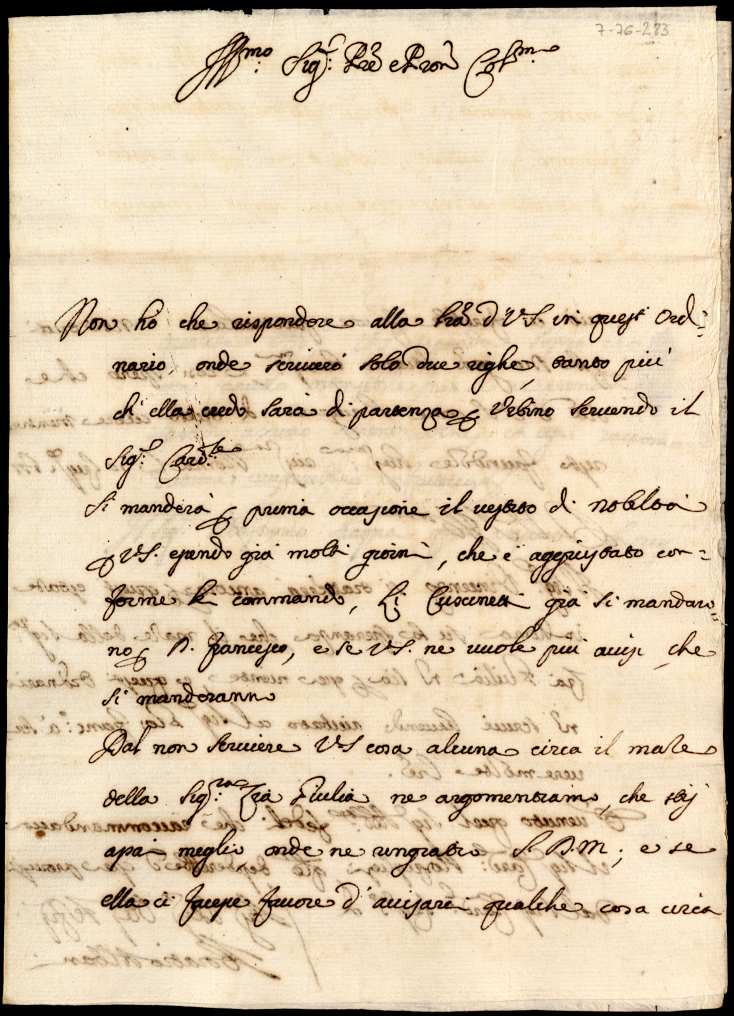 7-76-283
Ill.mo Sig.r Pre e Pron Col.mo
Non hò che rispondere alla lra d'V.S. in quest'Ordi-
nario, onde scriverò solo due righe, tanto più
ch'ella credo sarà di partenza p Urbino servendo il
Sig.r Card.le
Si manderà p prima occasione il vestito di nobiltà
p V.S. essendo già molti giorni, che è aggiustato con-
forme il commando, Li Cuscinetti già si mandaro-
no p D. Francesco, e se V.S. ne vuole più avisi, che
si manderanno
Dal non scrivere V.S. cosa alcuna circa il male
della Sig.ra Zia Giulia ne argomentiamo, che stij
assai meglio, onde ne ringratio S.D.M.; e se
ella ci facesse favore d'avisarci qualche cosa circa